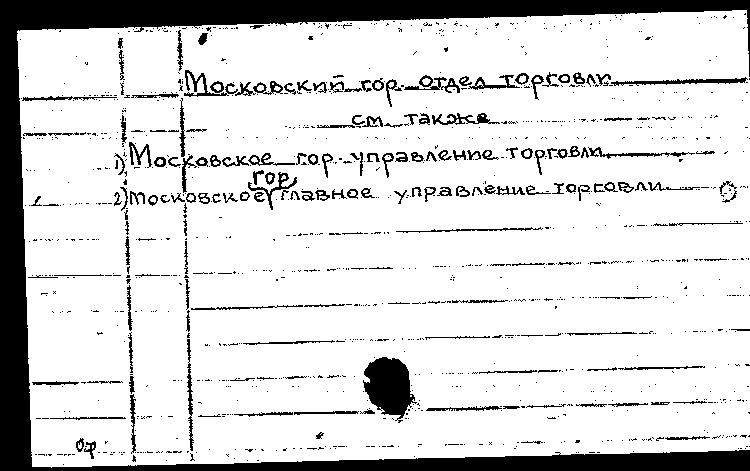 Московский гор. отдел торговли
см. также
1) Московское гор. управление торговли
гор.
2) Московское главное управление торговли